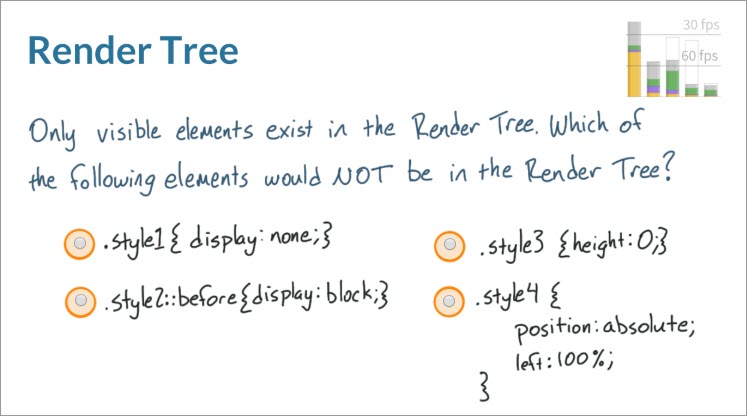 Render Tree
30 fps
60 fps
Only visible elements exist in the Render Tree. Which of
the following elements would NOT be in the Render Tree?
.style1{ display: none;}
.style2::before{display: block;}
.style3 {height: 0;}
.style4 {
position: absolute;
left: 100%;
}